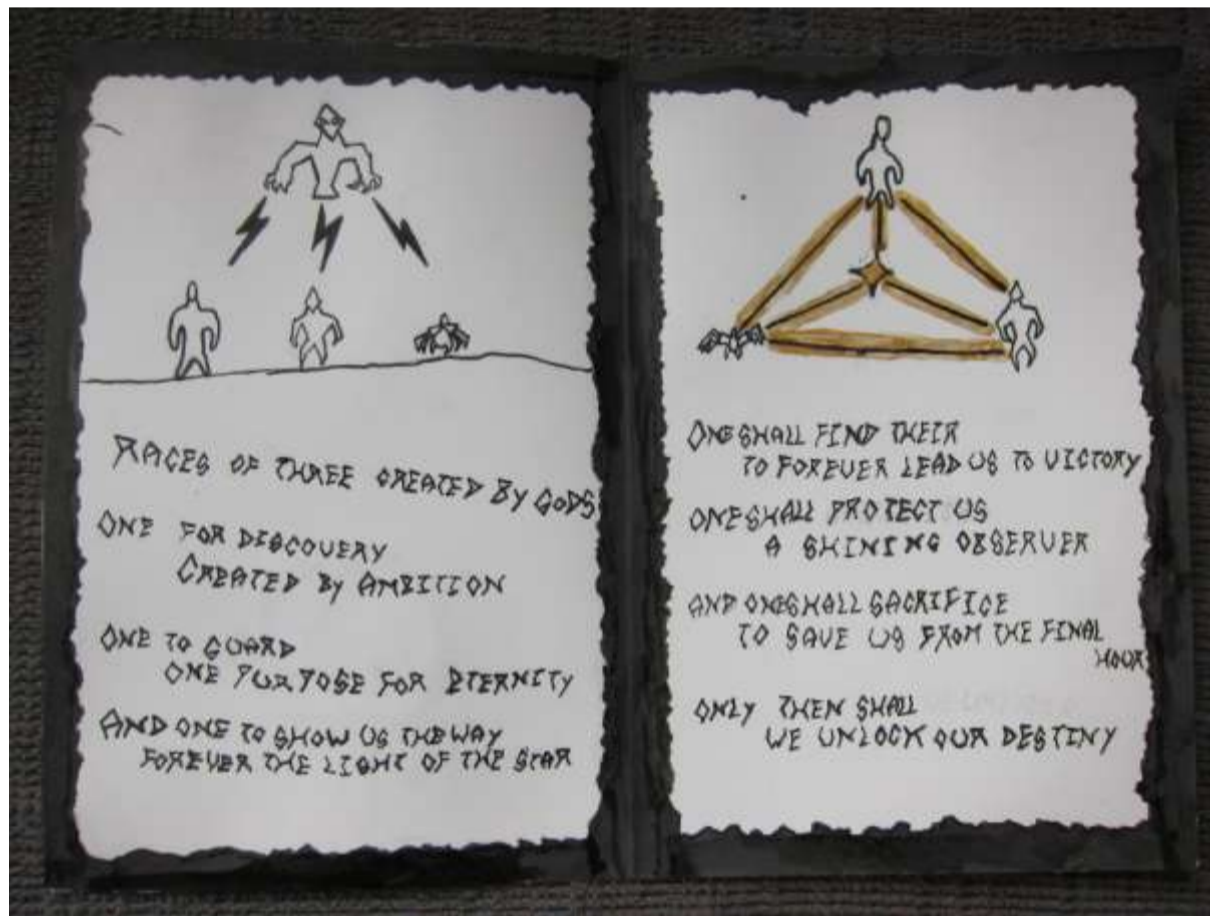 RACES OF THREE CREATED BY GODS
ONE FOR DISCOVERY
CREATED BY AMBITION
ONE TO GUARD
ONE PURPOSE FOR ETERNITY
AND ONE TO SHOW US THE WAY
FOREVER THE LIGHT OF THE STAR
ONE SHALL FIND THEIR
TO FOREVER LEAD US TO VICTORY
ONE SHALL PROTECT US
A SHINING OBSERVER
AND ONE SHALL SACRIFICE
TO SAVE US FROM THE FINAL
HOUR
ONLY THEN SHALL
WE UNLOCK OUR DESTINY